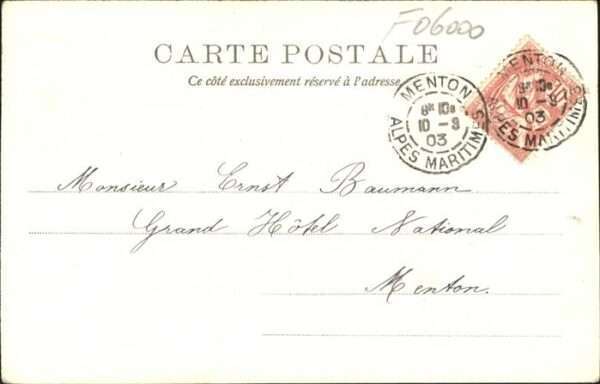 F06000
CARTE POSTALE
Ce côté exclusivement réservé à l'adresse
MENTON
8ᴱ 10ˢ
10 - 3
03
ALPES MARITIMES
MENTON
10 - 3
03
ALPES MARITIMES
Monsieur Ernst Baumann
Grand Hôtel National
Menton.